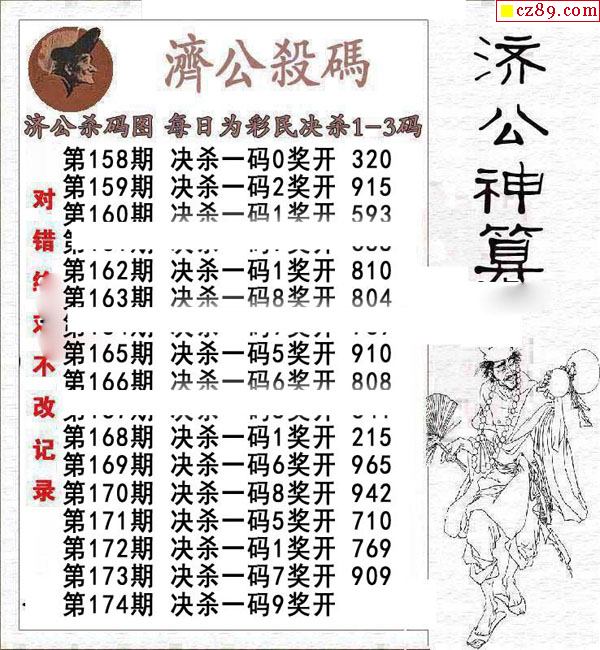 cz89.com
濟公殺碼
济公杀码图 每日为彩民决杀1-3码
第158期 决杀一码0奖开 320
第159期 决杀一码2奖开 915
第160期 决杀一码1奖开 593
第162期 决杀一码1奖开 810
第163期 决杀一码8奖开 804
第165期 决杀一码5奖开 910
第166期 决杀一码6奖开 808
第168期 决杀一码1奖开 215
第169期 决杀一码6奖开 965
第170期 决杀一码8奖开 942
第171期 决杀一码5奖开 710
第172期 决杀一码1奖开 769
第173期 决杀一码7奖开 909
第174期 决杀一码9奖开
对错 不改记录
济公神算